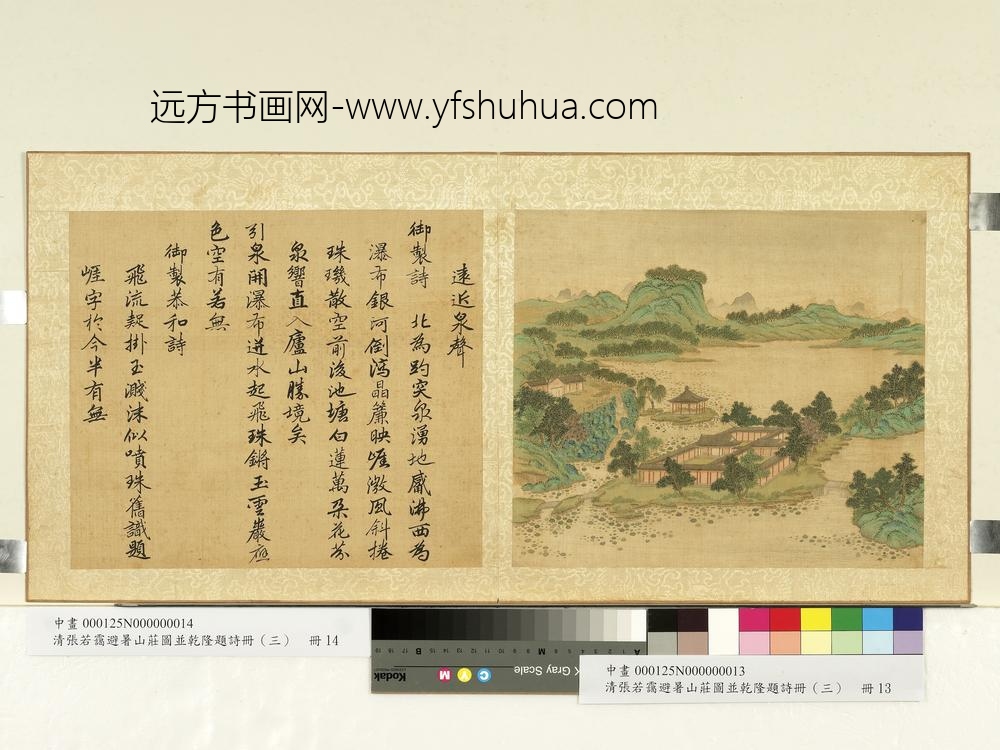 远方书画网-www.yfshuhua.com
遠近泉聲
御製詩 北為趵突泉湧地觱沸西為
瀑布銀河倒瀉晶簾映崕微風斜捲
珠璣散空前後池塘白蓮萬朶花芬
泉響直入廬山勝境矣
引泉開瀑布迸水起飛珠鏘玉雲巖應
色空有若無
御製恭和詩
飛流疑掛玉濺沫似噴珠舊識題
崕字於今半有無
中畫 000125N000000014
清張若靄避暑山莊圖並乾隆題詩冊（三） 冊 14
中畫 000125N000000013
清張若靄避暑山莊圖並乾隆題詩冊（三） 冊 13
Kodak
C Y M
K Gray Scale
A 1 2 3 4 5 6 M 8 9 10 11 12 13 14 15 B 17 18 19